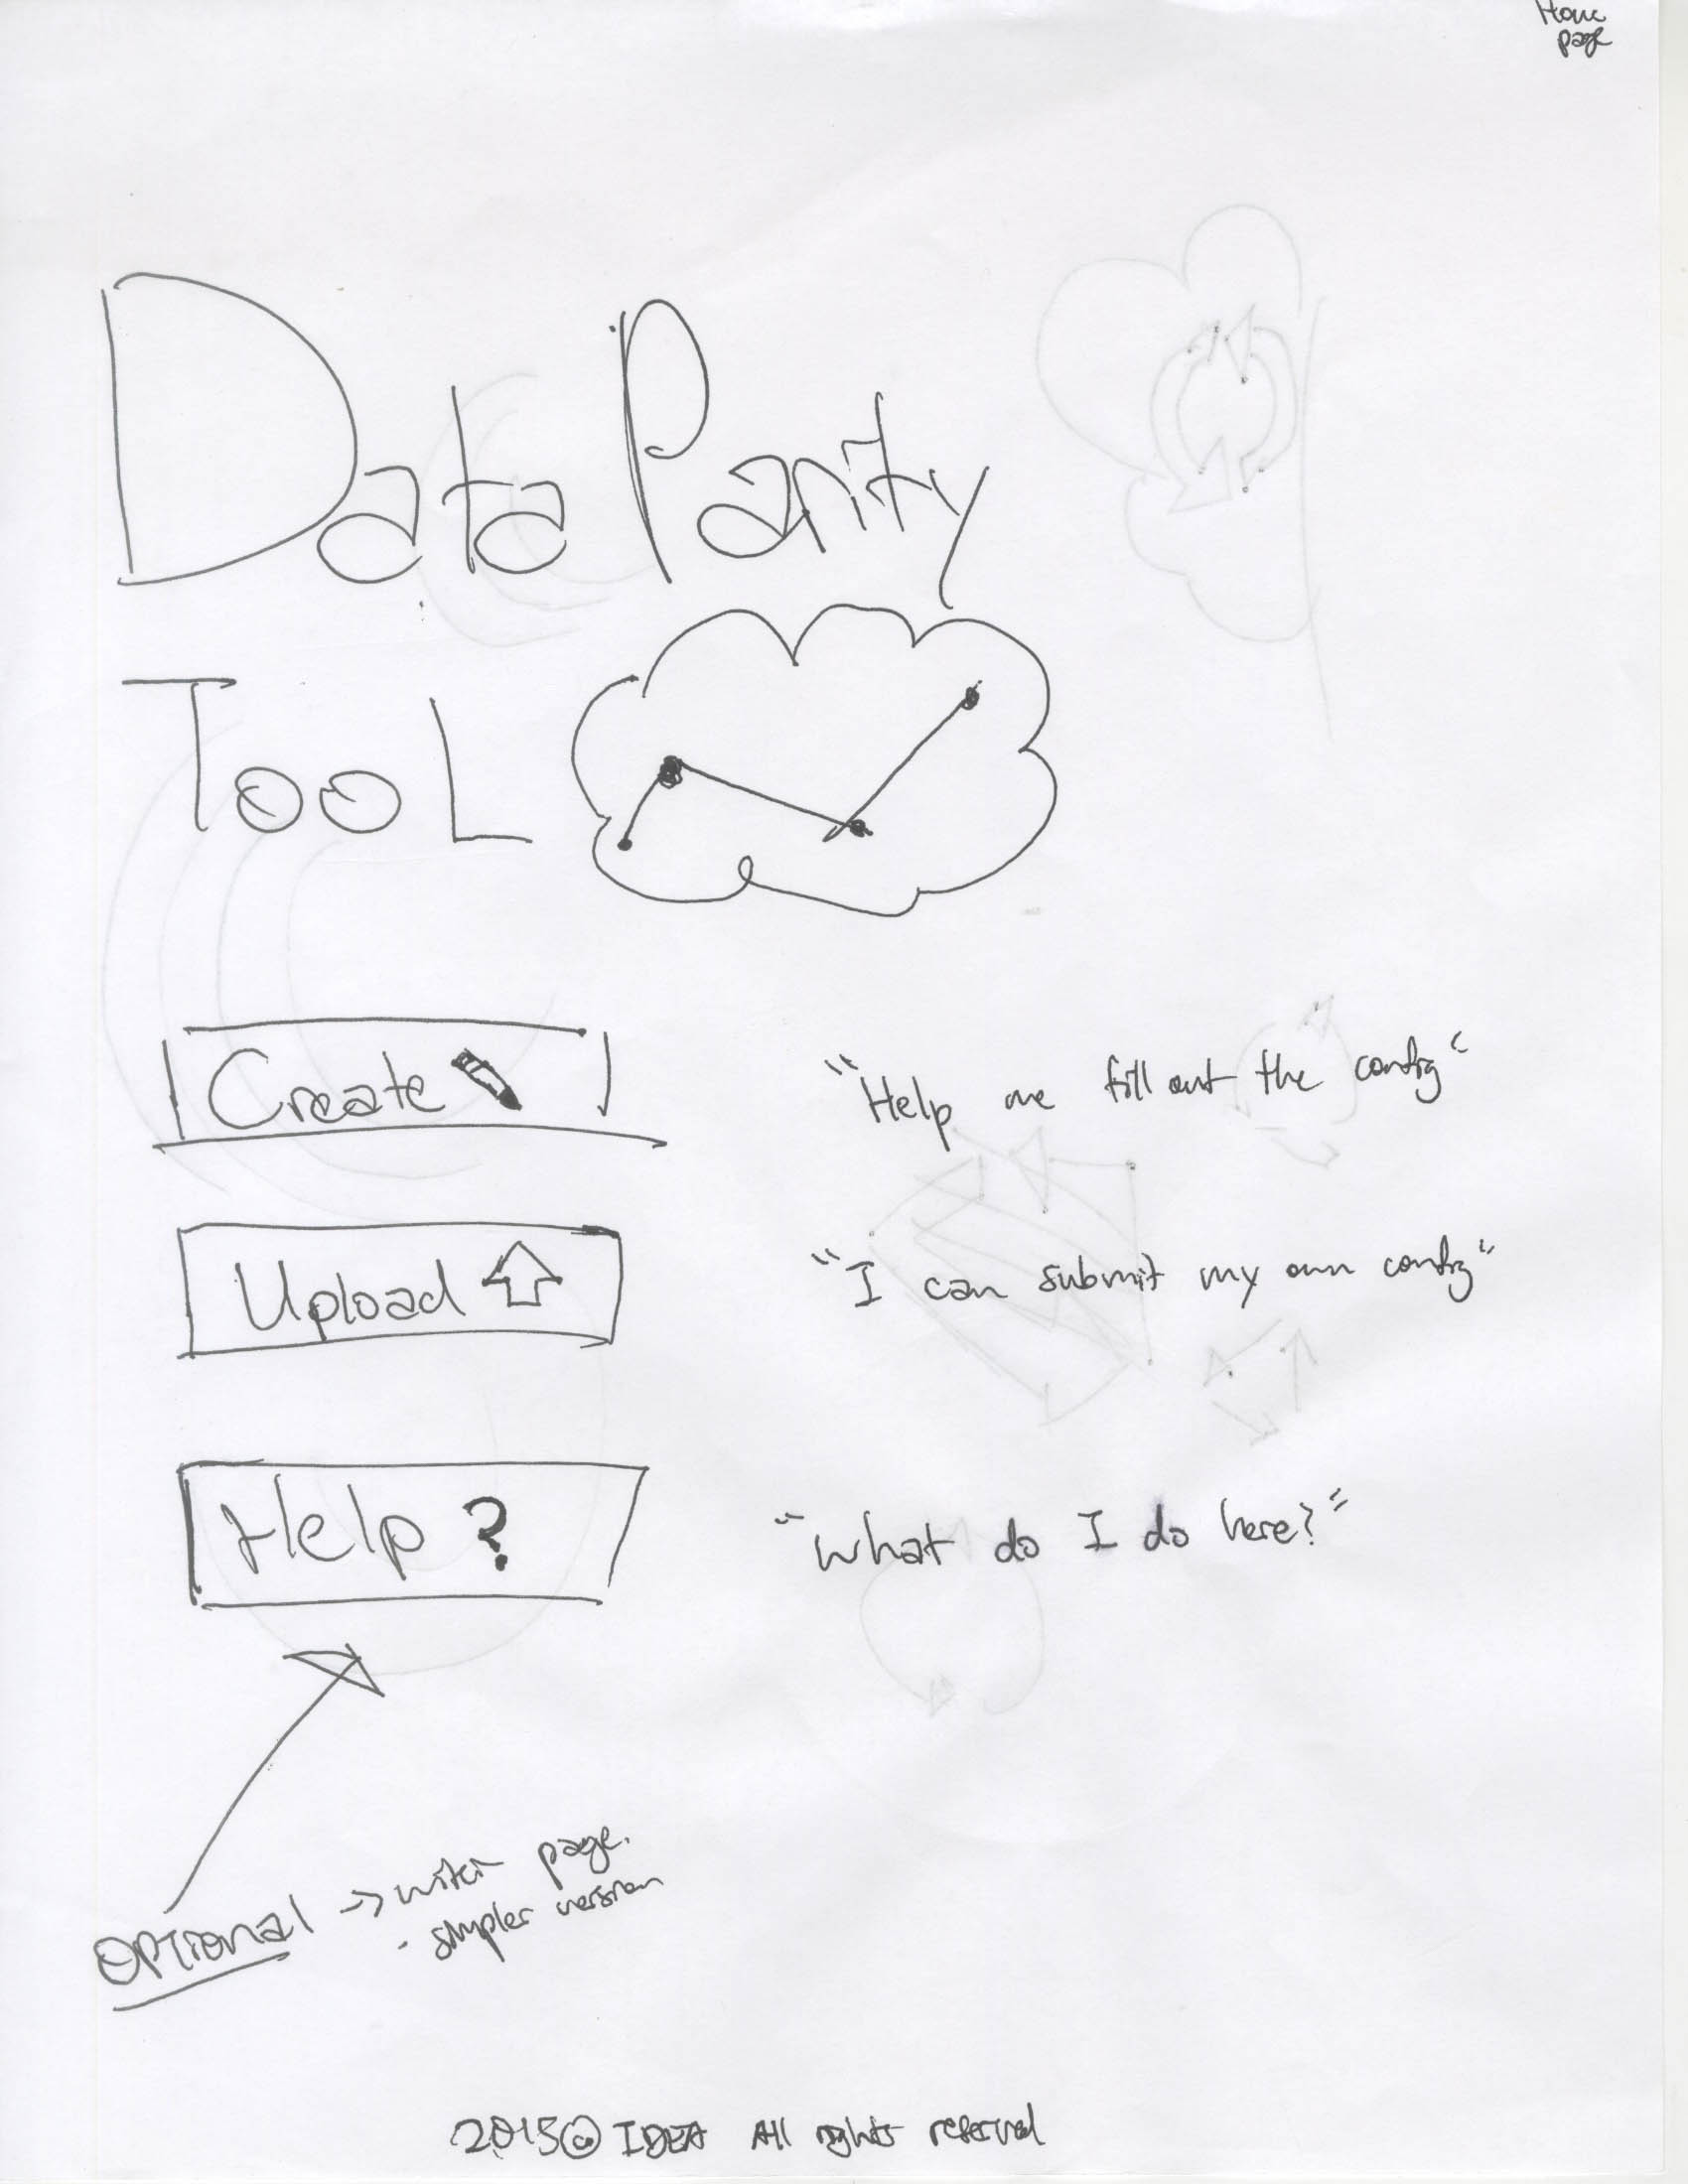 Home
page
Data Parity
TooL
Create
"Help me fill out the config"
Upload
"I can submit my own config"
Help ?
"what do I do here?"
OPTIONAL → wiki page.
- simpler version
2015© IDEA All rights reserved